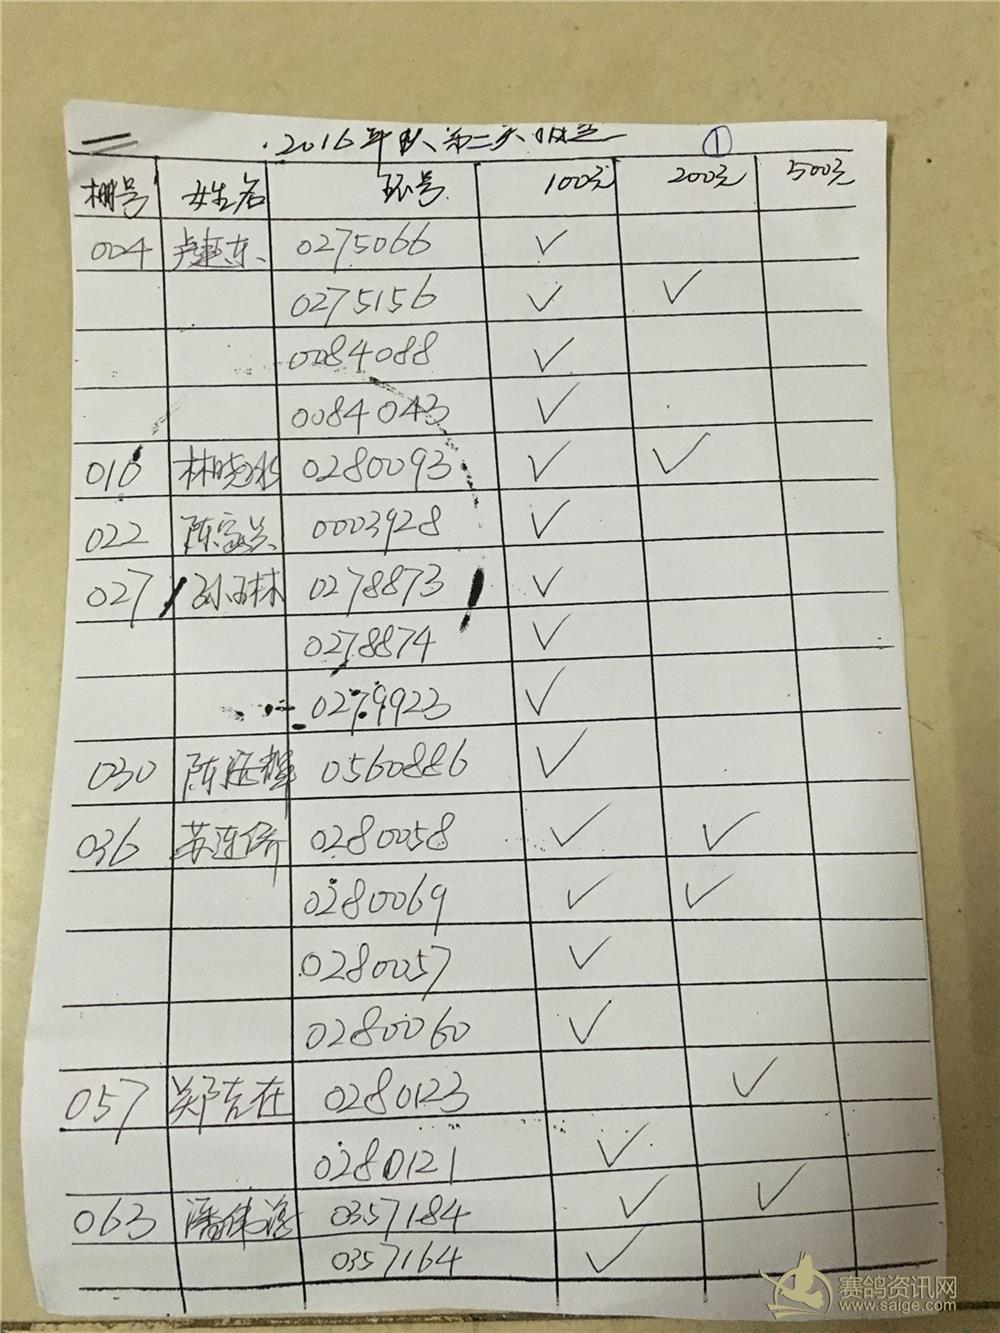 2016年 第二关
①
棚号 姓名 环号 100元 200元 500元
004 卢建东 0275066 ✓
0275156 ✓ ✓
0084088 ✓
0084043 ✓
016 林晓 0280093 ✓ ✓
022 陈 兴 0003928 ✓
027 孙玉林 0278873 ✓
0278874 ✓
0279923 ✓
030 陈 辉 0560886 ✓
036 苏连侨 0280058 ✓ ✓
0280069 ✓ ✓
0280057 ✓
0280060 ✓
057 郑吉在 0280123 ✓
0280121 ✓
063 潘伟 0357184 ✓ ✓
0357164 ✓
赛鸽资讯网
www.saige.com